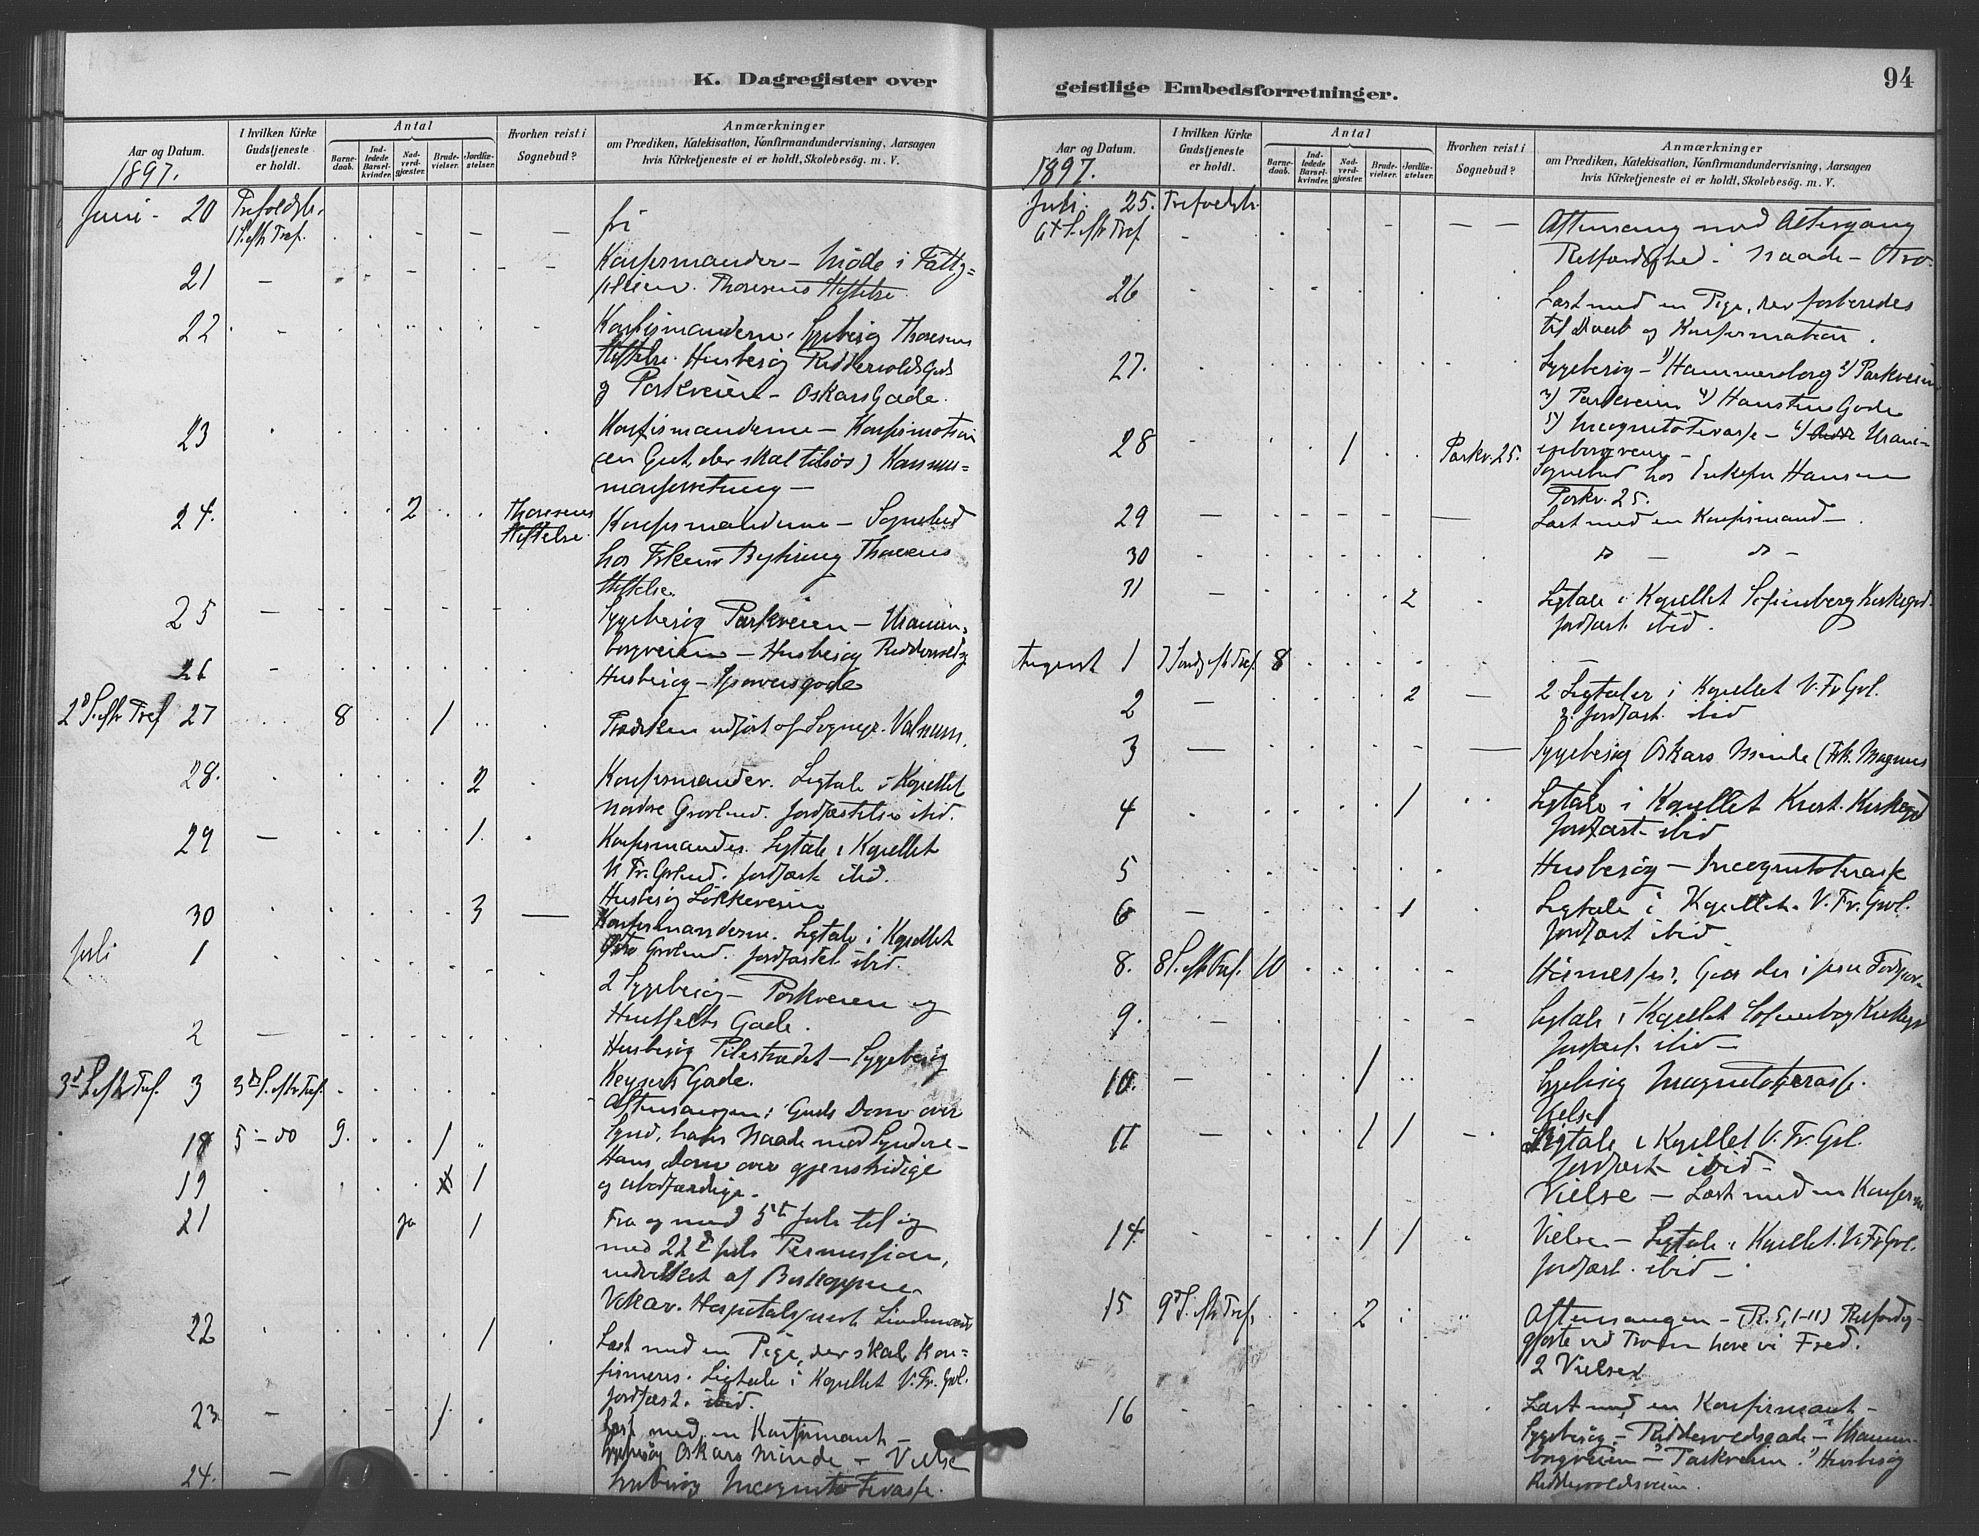 K. Dagregister over
Aar og Datum.
I hvilken Kirke Gudstjeneste er holdt.
Antal
Barne-daab.
Ind-ledede Barsel-kvinder.
Nad-verd-gjæster.
Brude-vielser.
Jordfæ-stelser.
Hvorhen reist i Sognebud?
Anmærkninger
om Prædiken, Katekisation, Konfirmandundervisning, Aarsagen
hvis Kirketjeneste ei er holdt, Skolebesög. m. V.
1897.
Juni - 20 Trefoldsk. fri
1 S. eft. Tref.
21 Konfirmander - Møde i Fattig=
pleien. Thoresens Stiftelse.
22 Konfirmanderne. Sygebesög Thoresens
Stiftelse. Husbesög RiddervoldsGade
og Parkveien - OskarsGade.
23 Konfirmanderne - Konfirmation
(en Gut, der skal tilsös)
24. 2 Thoresens Stiftelse Konfirmanderne - Sognebud
hos Thoresens
Stiftelse.
25 Sygebesög Parkveien - Uranien=
borgveien - Husbesög
26 Husbesög -
2d S. eft Tref 27 8 1 Prædiken udført af Sognepr.
28. 2 Konfirmander. Ligtale i Kapellet
Nordre Gravlund. Jordfæstelse ibid.
29 1. Konfirmander. Ligtale i Kapellet
V. Fr. Grlund. Jordfæst. ibid.
Husbesög Løkkeveien
30 3 Konfirmanderne. Ligtale i Kapellet
Gravlund. Jordfæstet ibid.
Juli 1 2 Sygebesög - Parkveien og
Huitfelts Gade.
2 Husbesög Pilestrædet - Sygebesög
Keysers Gade.
3d S. eft Tref. 3 3d S. eft Tref. Aftensangen: Guds Dom over
Synd, hans Naade mod Syndere -
Hans Dom over gjenstridige
og ubodfærdige.
18 5 - do 9. 1
19 1
21 ja 1 Fra og med 5te Juli til og
med 22d Juli Permission,
Vikar. Hospitalspræst
22 1 Læst med en Pige, der skal Kon=
firmeres. Ligtale i Kapellet V. Fr. Grl.
Jordfæst. ibid.
23. 1 Læst med en Konfirmant -
Sygebesög Oskars Minde - Vielse
24. Husbesög Incognito Terasse.
geistlige Embedsforretninger.
94
Aar og Datum.
I hvilken Kirke Gudstjeneste er holdt.
Antal
Barne-daab.
Ind-ledede Barsel-kvinder.
Nad-verd-gjæster.
Brude-vielser.
Jordfæ-stelser.
Hvorhen reist i Sognebud?
Anmærkninger
om Prædiken, Katekisation, Konfirmandundervisning, Aarsagen
hvis Kirketjeneste ei er holdt, Skolebesög. m. V.
1897.
Juli. 25. Trefoldsk. Aftensang med Altergang
6te S. eft Tref Retfærdighed - Naade - Tro.
26 Læst med en Pige, der forberedes
til Daab og Konfirmation.
27. Sygebesög - 1) Hammersborg 2) Parkveien
3) Parkveien 4) HansteensGade
5) IncognitoTerasse - 6) Urani-
enborgveien -
28 1 Parkv. 25. Sognebud hos Enkefru Hansen
Parkv. 25.
29 Læst med en Konfirmand -
30 do - do -
31 2 Ligtale i Kapellet Sofienberg Kirkegrd.
Jordfæst. ibid.
August 1 7 Sønd. eft Tref. 8
2 2 2 Ligtaler i Kapellet V. Fr Grl.
2. Jordfæst. ibid
3 Sygebesög Oskars Minde (Frk. Magnus
4 1 Ligtale i Kapellet Krist. Kirkegd
Jordfæst. ibid
5 Husbesög - Incognitoterasse
6 1 Ligtale i Kapellet. V. Fr. Grl.
Jordfæst ibid
8. 8 S. eft Tref. 10
9. Ligtale i Kapellet Sofienberg Kirkegd
Jordfæst. ibid -
10. 1 Sygebesög Incognitoterasse.
Vielse
11 1 1 Ligtale i Kapellet V. Fr. Grl.
Jordfæst - ibid -
Vielse - Læst med en Konfirm
14 1 1 Vielse - Ligtale i Kapellet. V. Fr Grl.
Jordfæst. ibid -
15 9d S. eft Tref. 2 Aftensangen - (R. 5, 1-11) Retfærdig-
gjorte ved Troen have vi Fred.
2 Vielser
16 Læst med en Konfirmant -
Sygebesög - Riddervoldsgade - Uranien-
borgveien - Parkveien. Husbesög
Riddervoldsveien.